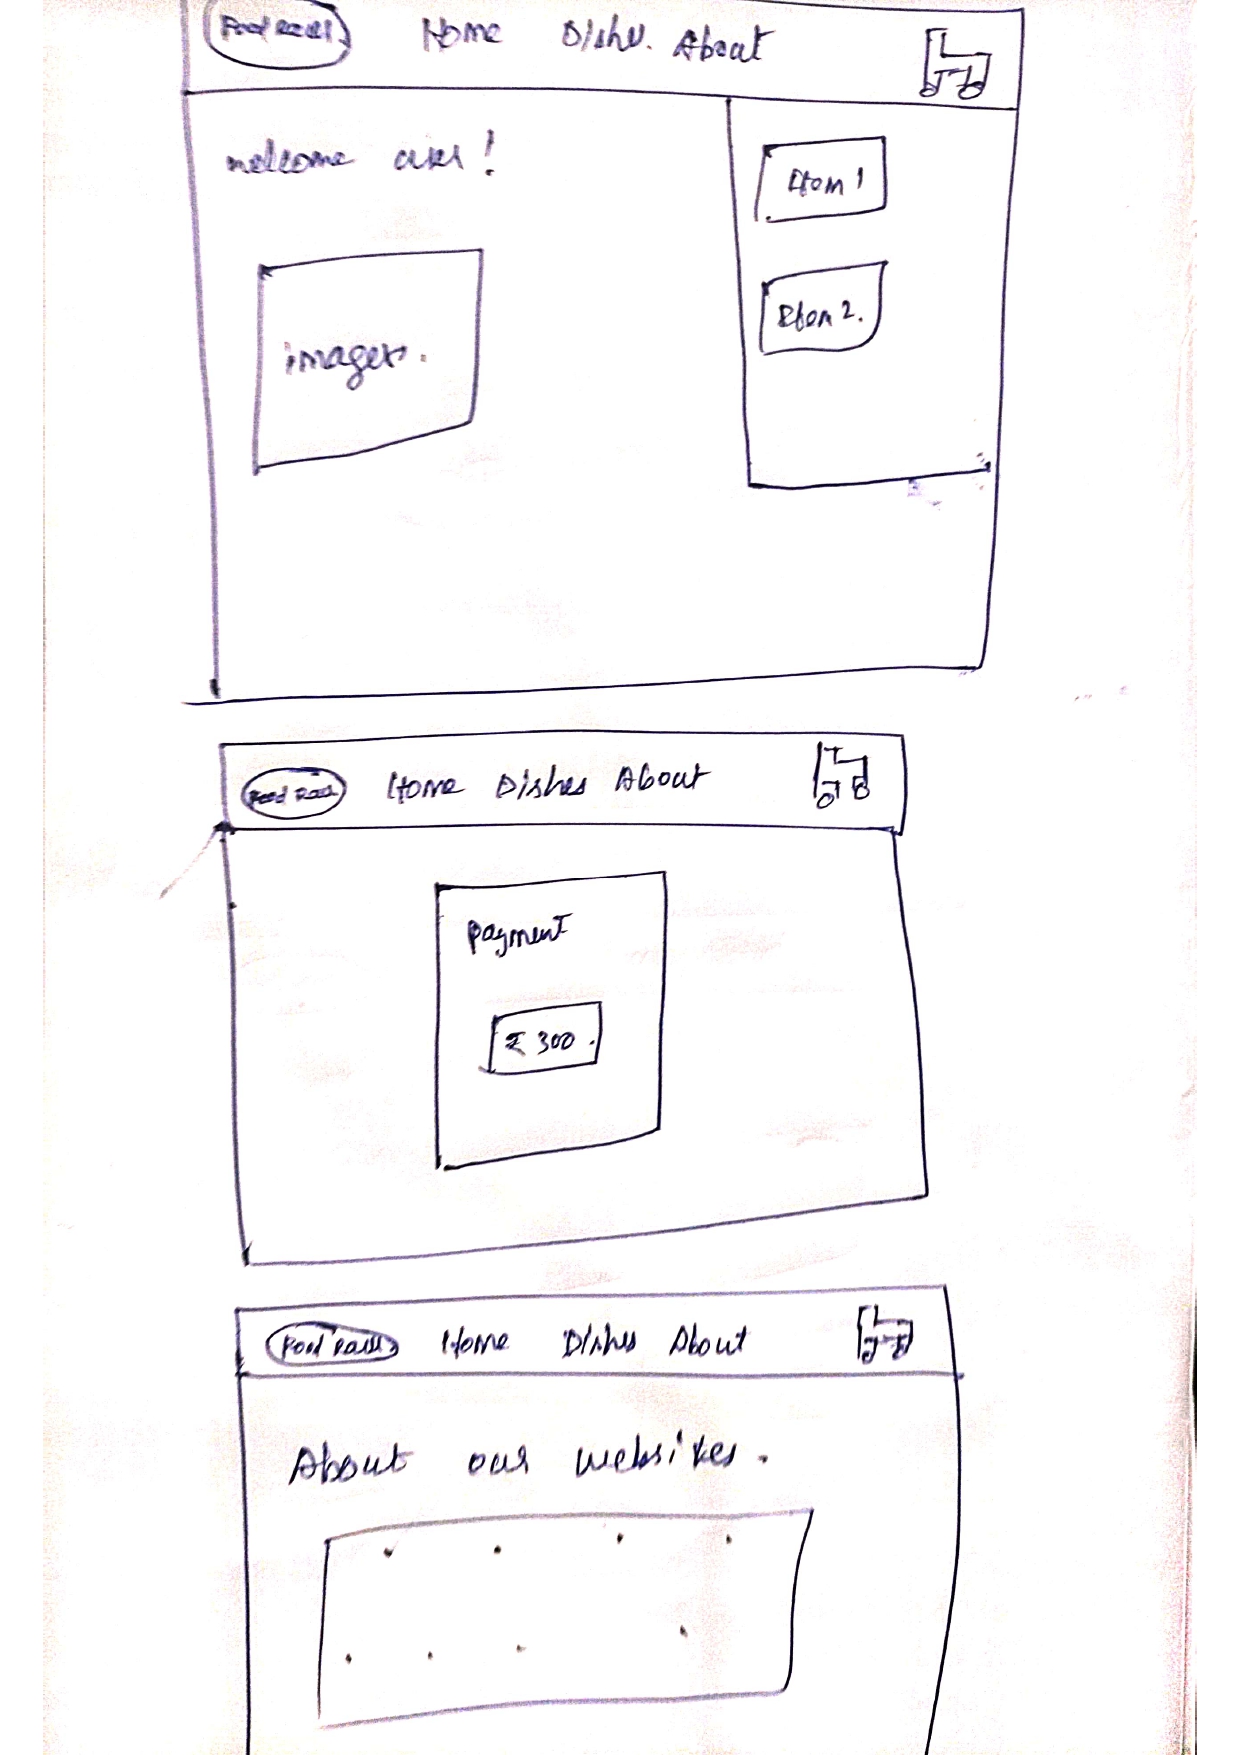 Home Dishes. About
welcome user!
Item 1
images.
Item 2.
Home Dishes About
payment
₹ 300.
Food Rails Home Dishes About
About our websites.